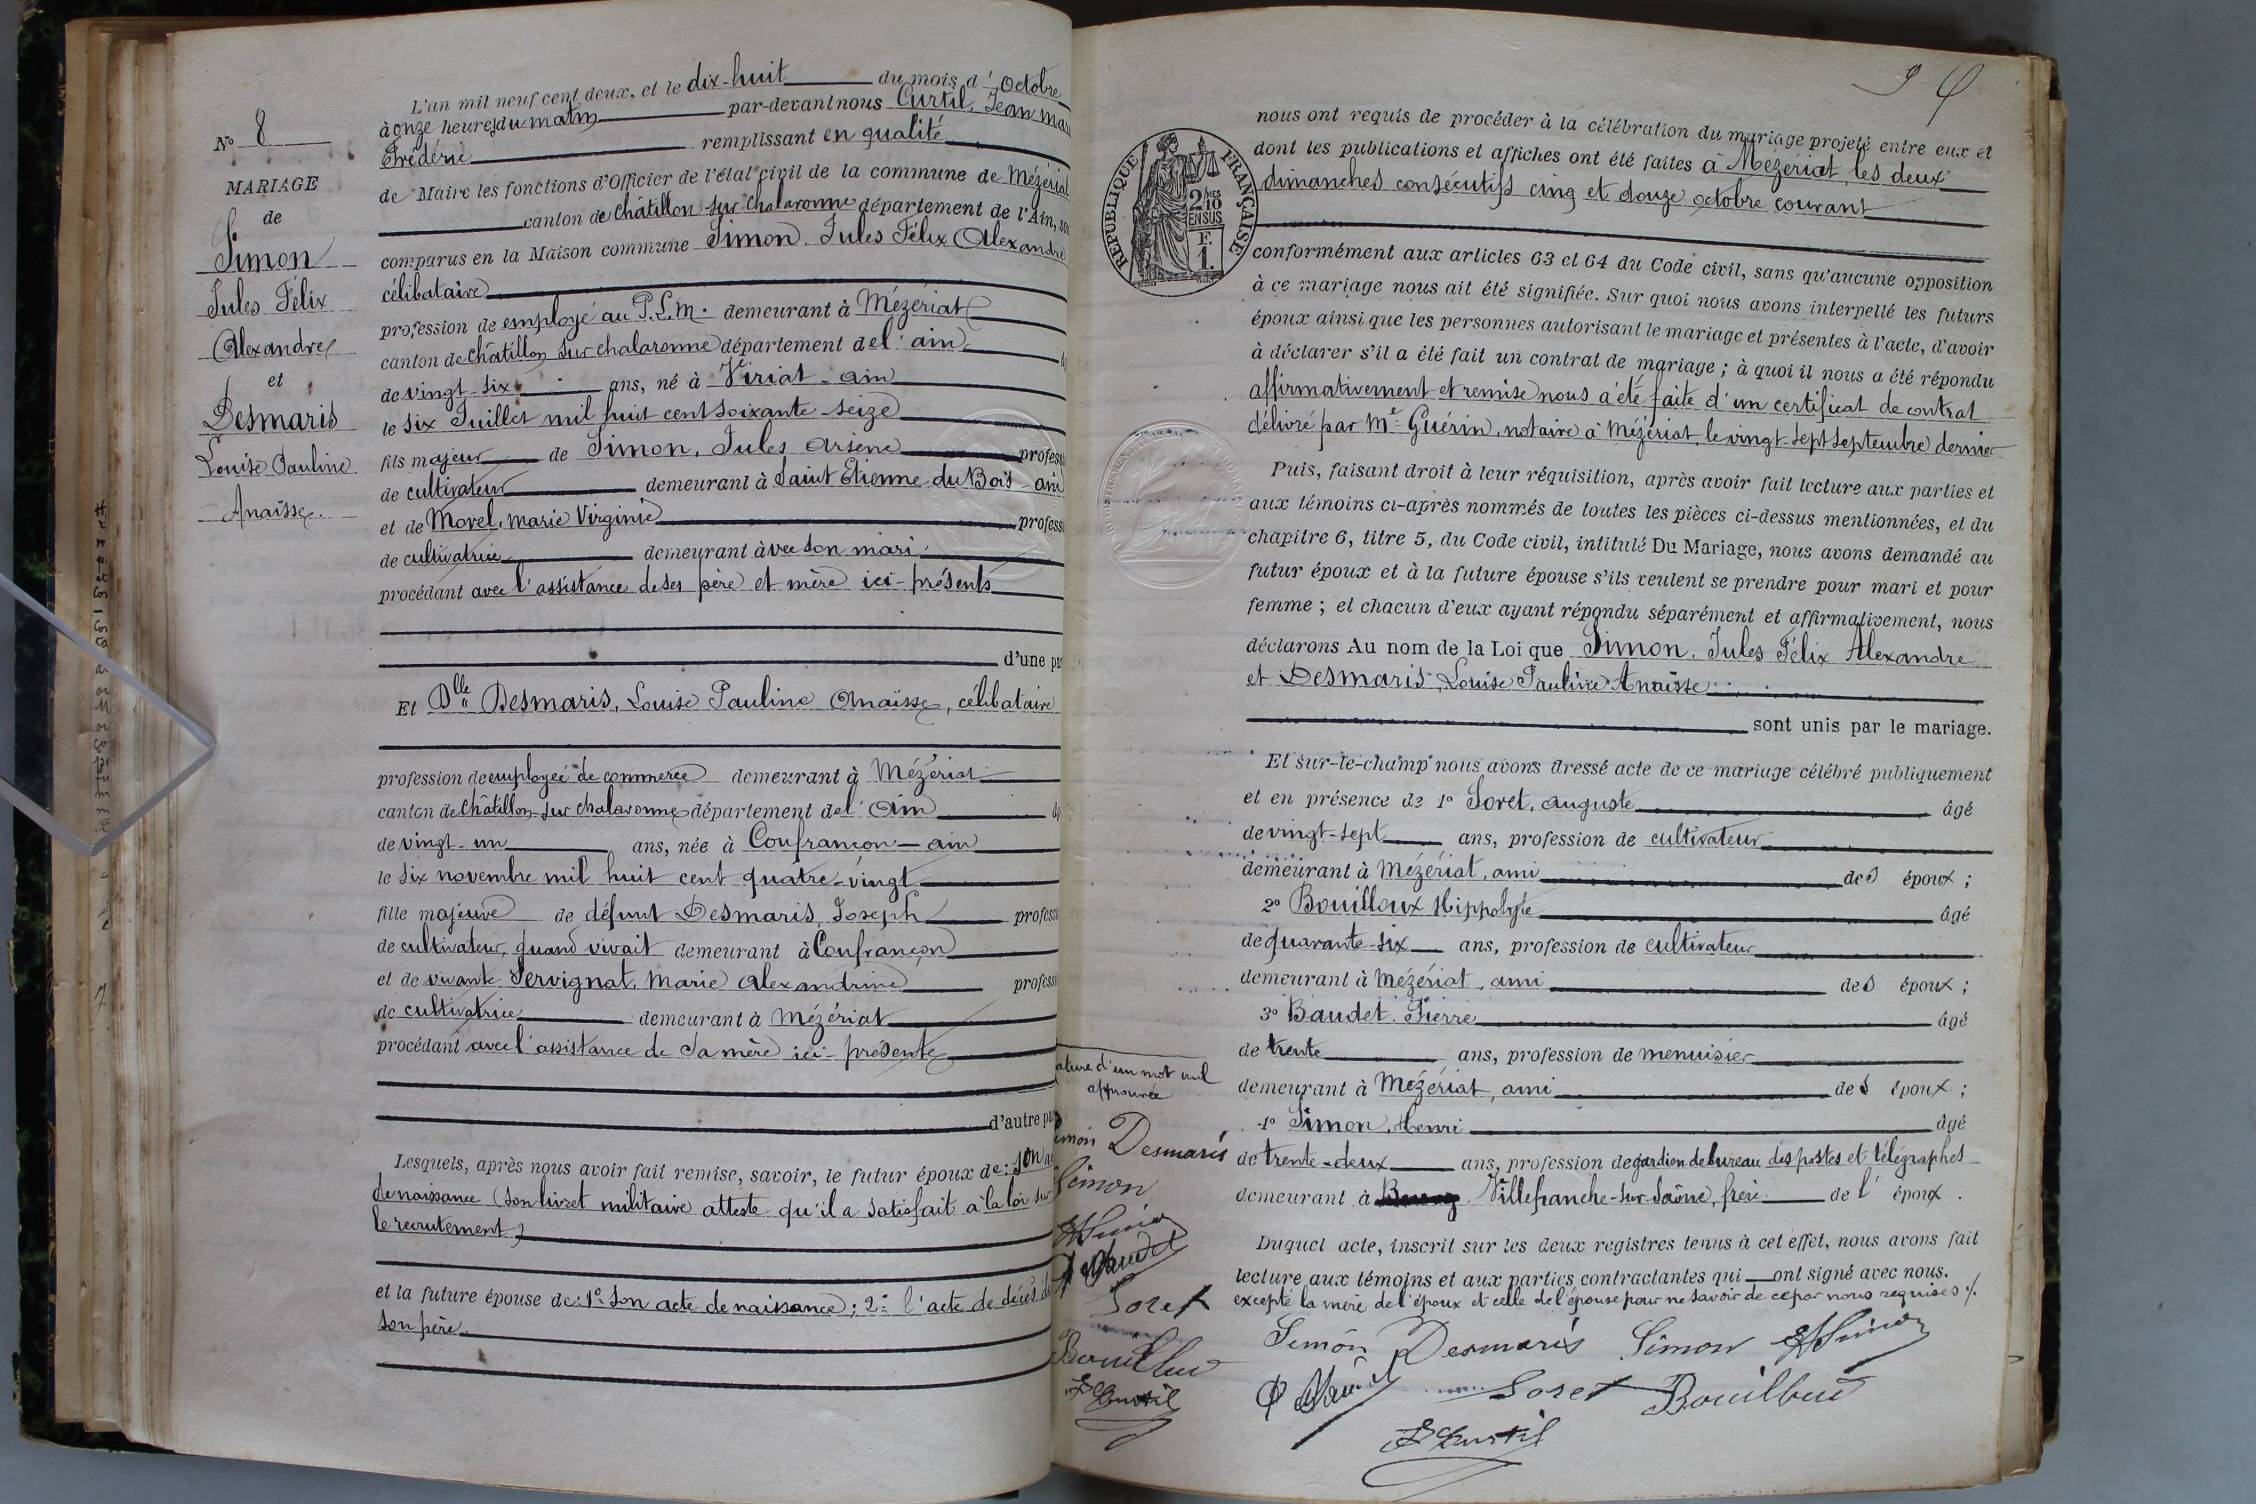 L'an mil neuf cent deux, et le dix-huit du mois d'Octobre
à onze heures du matin par-devant nous Curtil, Jean Mar
Frédéric remplissant en qualité
de Maire les fonctions d'Officier de l'état civil de la commune de Mézériat
canton de Châtillon sur Chalaronne département de l'Ain, so
comparus en la Maison commune Simon, Jules Félix Alexandre
célibataire
profession de employé au P.L.M. demeurant à Mézériat
canton de Châtillon sur chalaronne département de l'ain
de vingt-six ans, né à Viriat - ain
le six Juillet mil huit cent soixante-seize
fils majeur de Simon, Jules Arsène profess
de cultivateur demeurant à Saint Etienne du Bois - ain
et de Morel, Marie Virginie profess
de cultivatrice demeurant avec son mari
procédant avec l'assistance de ses père et mère ici-présents
d'une pa
Et Dlle Desmaris, Louise Pauline Anaïsse, célibataire
profession de employée de commerce demeurant à Mézériat
canton de Châtillon sur Chalaronne département de l'Ain
de vingt-un ans, née à Confrançon - ain
le six novembre mil huit cent quatre-vingt
fille majeure de défunt Desmaris, Joseph profess
de cultivateur, quand vivait demeurant à Confrançon
et de vivante Servignat, Marie Alexandrine profess
de cultivatrice demeurant à Mézériat
procédant avec l'assistance de sa mère ici-présente
d'autre pa
Lesquels, après nous avoir fait remise, savoir, le futur époux de: son
de naissance (son livret militaire atteste qu'il a satisfait à la loi sur
le recrutement)
et la future épouse de: 1° son acte de naissance; 2° l'acte de décès de
son père
No 8
MARIAGE
de
Simon
Jules Félix
Alexandre
et
Desmaris
Louise Pauline
Anaïsse.
nous ont requis de procéder à la célébration du mariage projeté entre eux et
dont les publications et affiches ont été faites à Mézériat, les deux
dimanches consécutifs cinq et douze octobre courant
conformément aux articles 63 et 64 du Code civil, sans qu'aucune opposition
à ce mariage nous ait été signifiée. Sur quoi nous avons interpellé les futurs
époux ainsi que les personnes autorisant le mariage et présentes à l'acte, d'avoir
à déclarer s'il a été fait un contrat de mariage; à quoi il nous a été répondu
affirmativement et remise nous a été faite d'un certificat de contrat
délivré par Me Guérin, notaire à Mézériat, le vingt-sept septembre dernier
Puis, faisant droit à leur réquisition, après avoir fait lecture aux parties et
aux témoins ci-après nommés de toutes les pièces ci-dessus mentionnées, et du
chapitre 6, titre 5, du Code civil, intitulé Du Mariage, nous avons demandé au
futur époux et à la future épouse s'ils veulent se prendre pour mari et pour
femme; et chacun d'eux ayant répondu séparément et affirmativement, nous
déclarons Au nom de la Loi que Simon, Jules Félix Alexandre
et Desmaris, Louise Pauline Anaïsse
sont unis par le mariage.
Et sur-le-champ nous avons dressé acte de ce mariage célébré publiquement
et en présence de 1° Soret, auguste âgé
de vingt-sept ans, profession de cultivateur
demeurant à Mézériat, ami des époux;
2° Bouilloux Hippolyte âgé
de quarante-six ans, profession de cultivateur
demeurant à Mézériat, ami des époux;
3° Baudet Pierre âgé
de trente ans, profession de menuisier
demeurant à Mézériat, ami des époux;
4° Simon, Henri âgé
de trente-deux ans, profession de gardien de bureau des postes et télégraphes
demeurant à Villefranche-sur-Saône, frère de l'époux.
Duquel acte, inscrit sur les deux registres tenus à cet effet, nous avons fait
lecture aux témoins et aux parties contractantes qui ont signé avec nous.
excepté la mère de l'époux et celle de l'épouse pour ne savoir de ce par nous requises
Simon Desmaris Simon
Soret Bouilloux
Curtil
RÉPUBLIQUE FRANÇAISE
2/10
EN SUS
F.
1.
ature d'un mot nul
approuvée
Simon Desmaris
Simon
Baudet
Soret
Bouilloux
Curtil